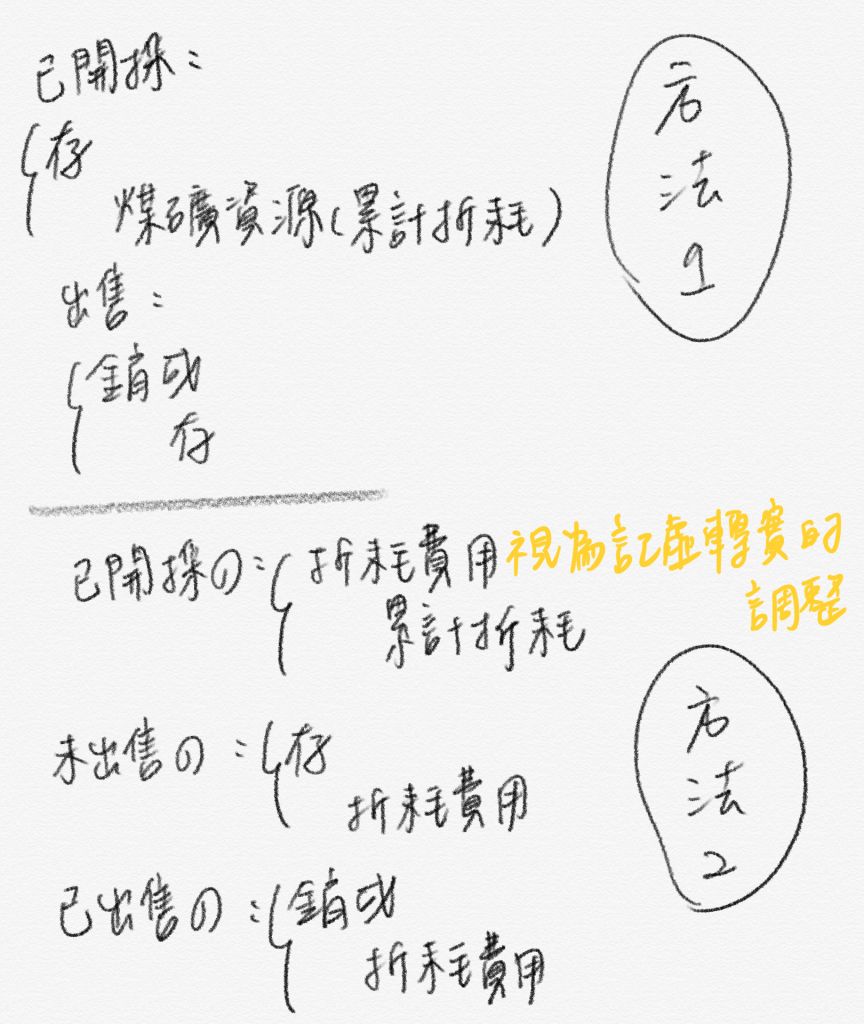 已開採：
存
煤礦資源(累計折耗)
出售：
銷成
存
方
法
1
已開採の：折耗費用
視為記虛轉實的
調整
累計折耗
未出售の：存
折耗費用
已出售の：銷成
折耗費用
方
法
2